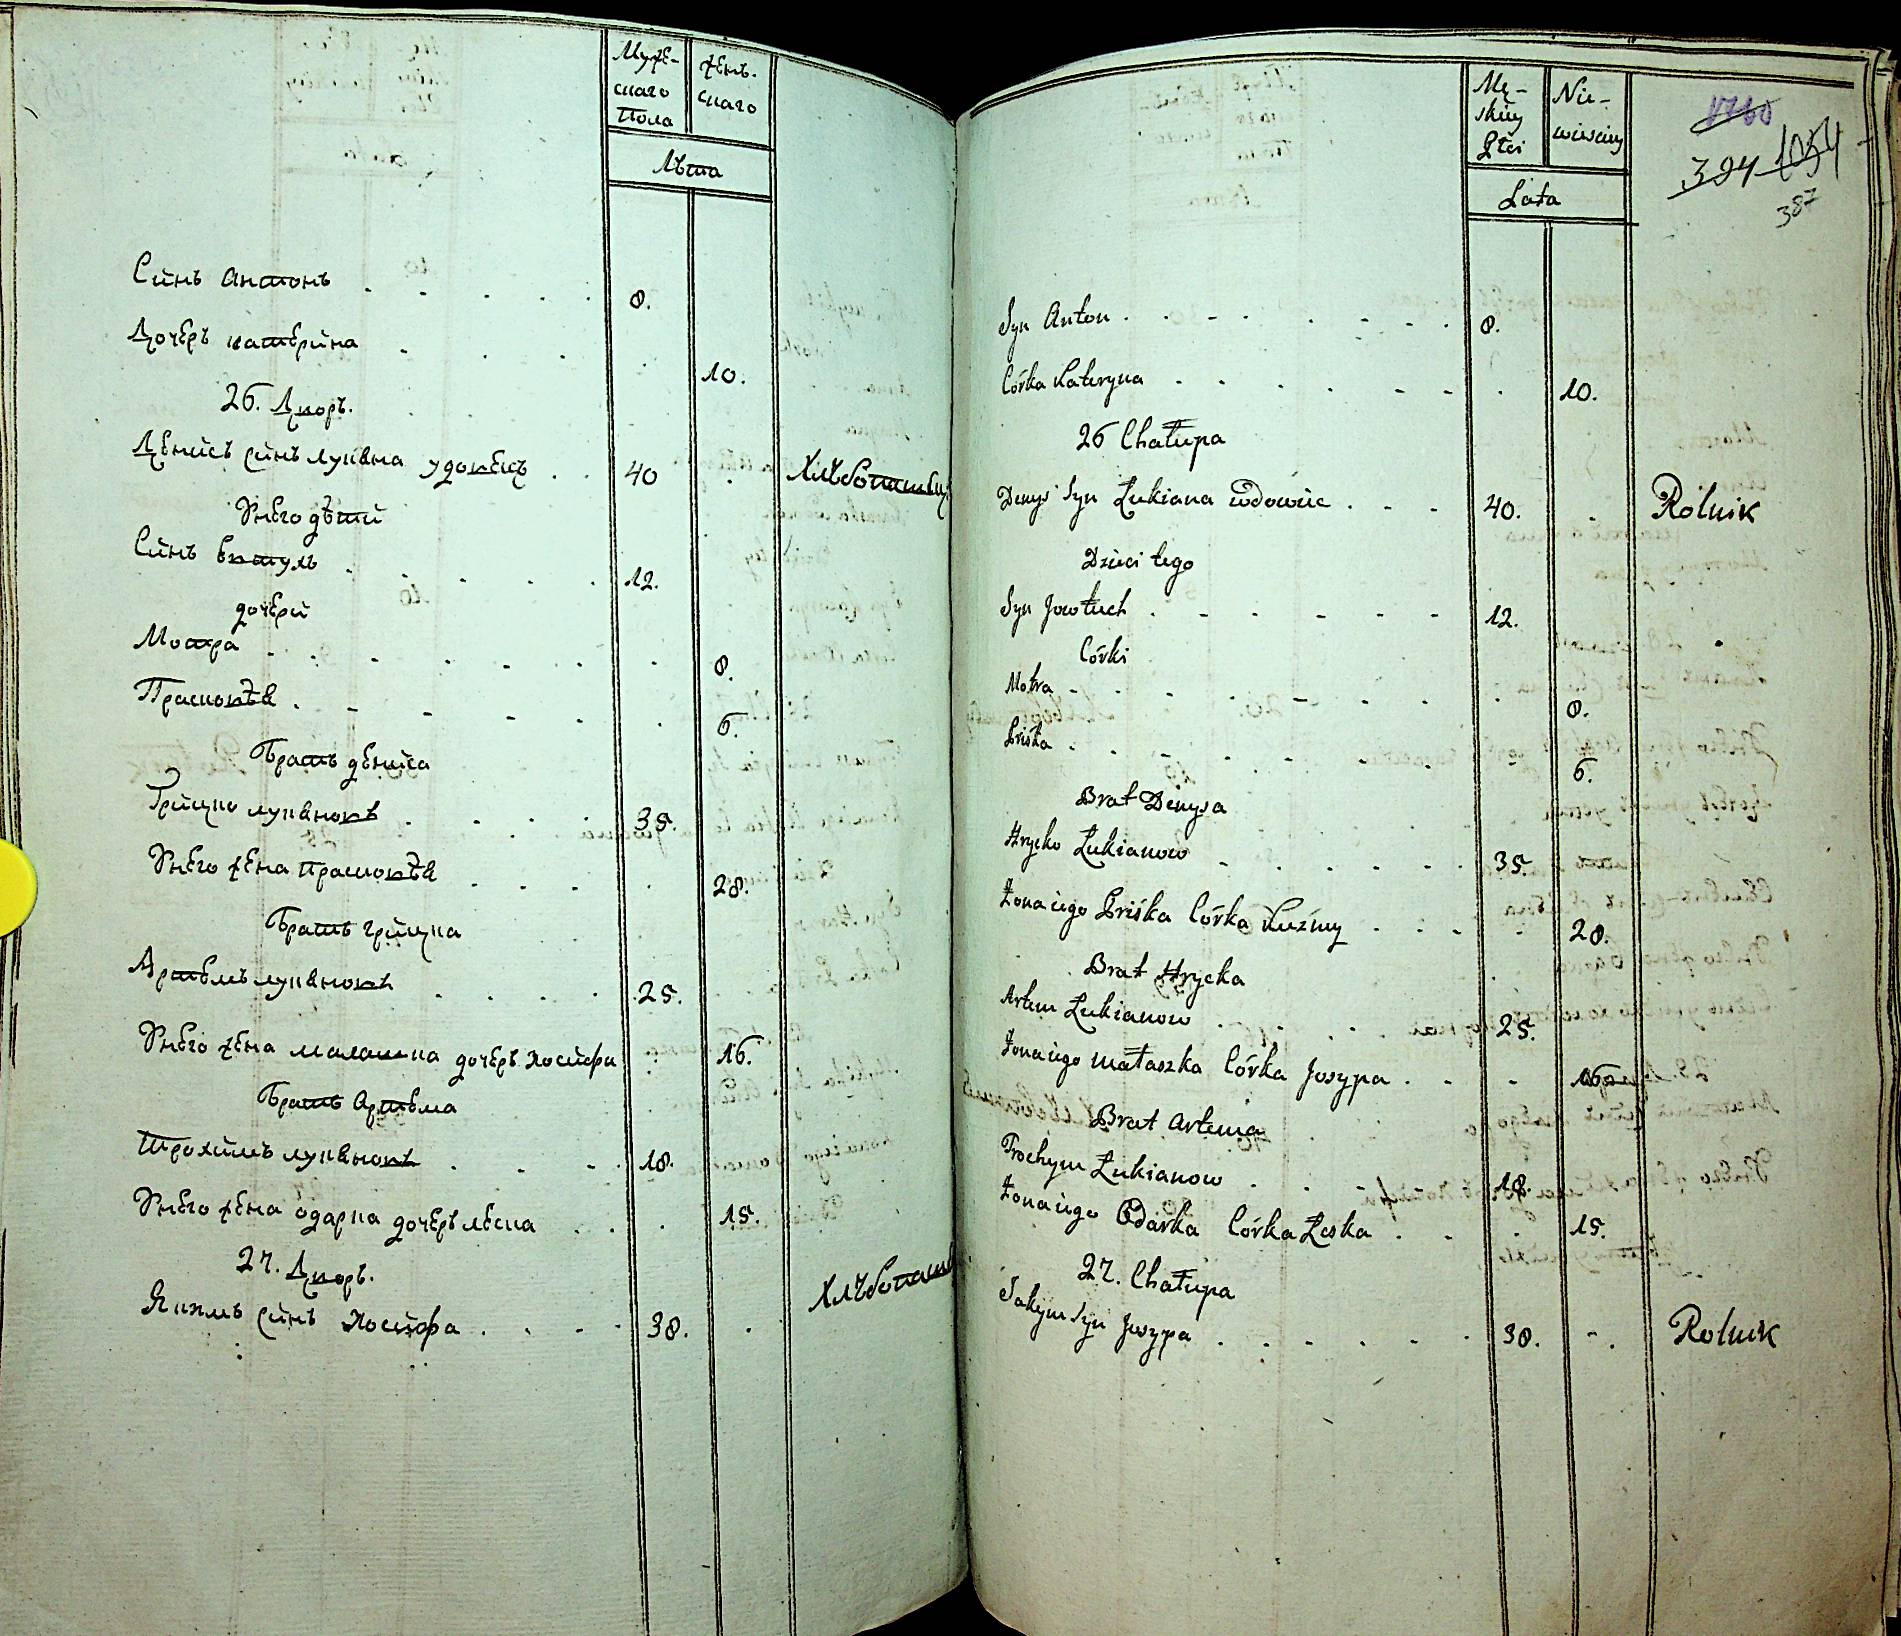 Муже-
скаго
Пола
жень-
скаго
Лѣта
Синъ Антонъ 8.
Дочеръ катерина 10.
26. Дворъ.
Денисъ синъ лукяна удовецъ 40 Хлѣбопашецъ
У него дѣти
Синъ 12.
дочери
Мотра 8.
Прасковѣя 6.
Братъ дениса
Грицко лукяновъ 35.
У него жена Прасковѣя 28.
Братъ грицка
Артемъ лукяновъ 25.
У него жена малашка дочеръ иосифа 16.
Братъ Артема
Трохимъ лукяновъ 18.
У него жена одарка дочеръ леска 15.
27. Дворъ.
Якимъ синъ иосифа 38. Хлѣбопаше
Mę-
skiey
Płci
Nie-
wiesciey
Lata
1760
394 1054
387
Syn Anton 8.
Córka Kateryna 10.
26 Chałupa
Denys Syn Łukiana wdowiec 40. Rolnik
Dzieci tego
Syn Jowtuch 12.
Córki
Motra 8.
Priśka 6.
Brat Denysa
Hrycko Łukianow 35.
Żona iego Priśka Córka Kuźmy 28.
Brat Hrycka
Artem Łukianow 25.
Żona iego Małaszka Córka Josypa 16.
Brat Artema
Trochym Łukianow 18.
Żona iego Odarka Córka Leska 15.
27. Chałupa
Jakym Syn Josypa 38. Rolnik